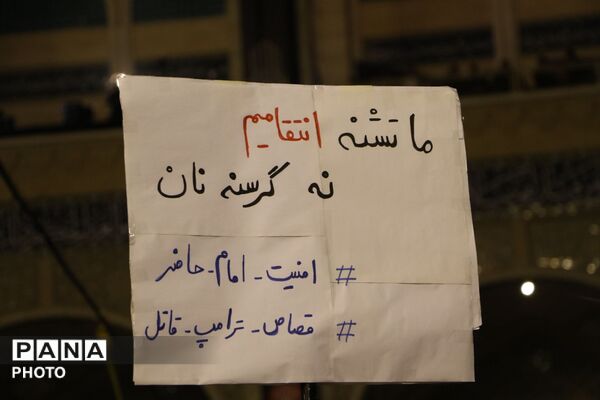 ما تشنه انتقامیم
نه گرسنه نان
# امنیت - امام - حاضر
# قصاص - ترامپ - قاتل
PANA
PHOTO